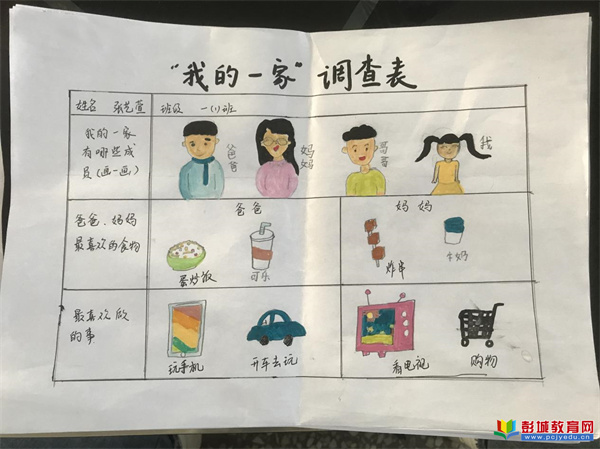 “我的一家”调查表
姓名 张艺萱 班级 一(1)班
我的一家
有哪些成
员(画一画)
爸爸
妈妈
哥哥
我
爸爸、妈妈
最喜欢的食物
爸爸
妈妈
蛋炒饭
可乐
炸串
牛奶
最喜欢做
的事
玩手机
开车去玩
看电视
购物
彭城教育网
www.pcjyedu.cn